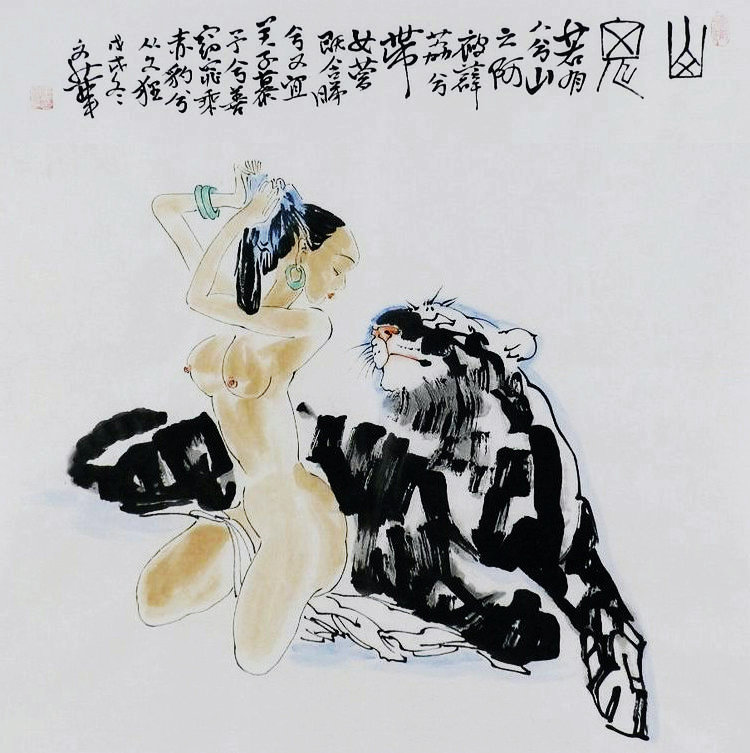 山
鬼
若有
人兮山
之阿
被薜
荔兮
带
女萝
既含睇
兮又宜
笑子慕
予兮善
窈窕乘
赤豹兮
从文狸
戊戌冬